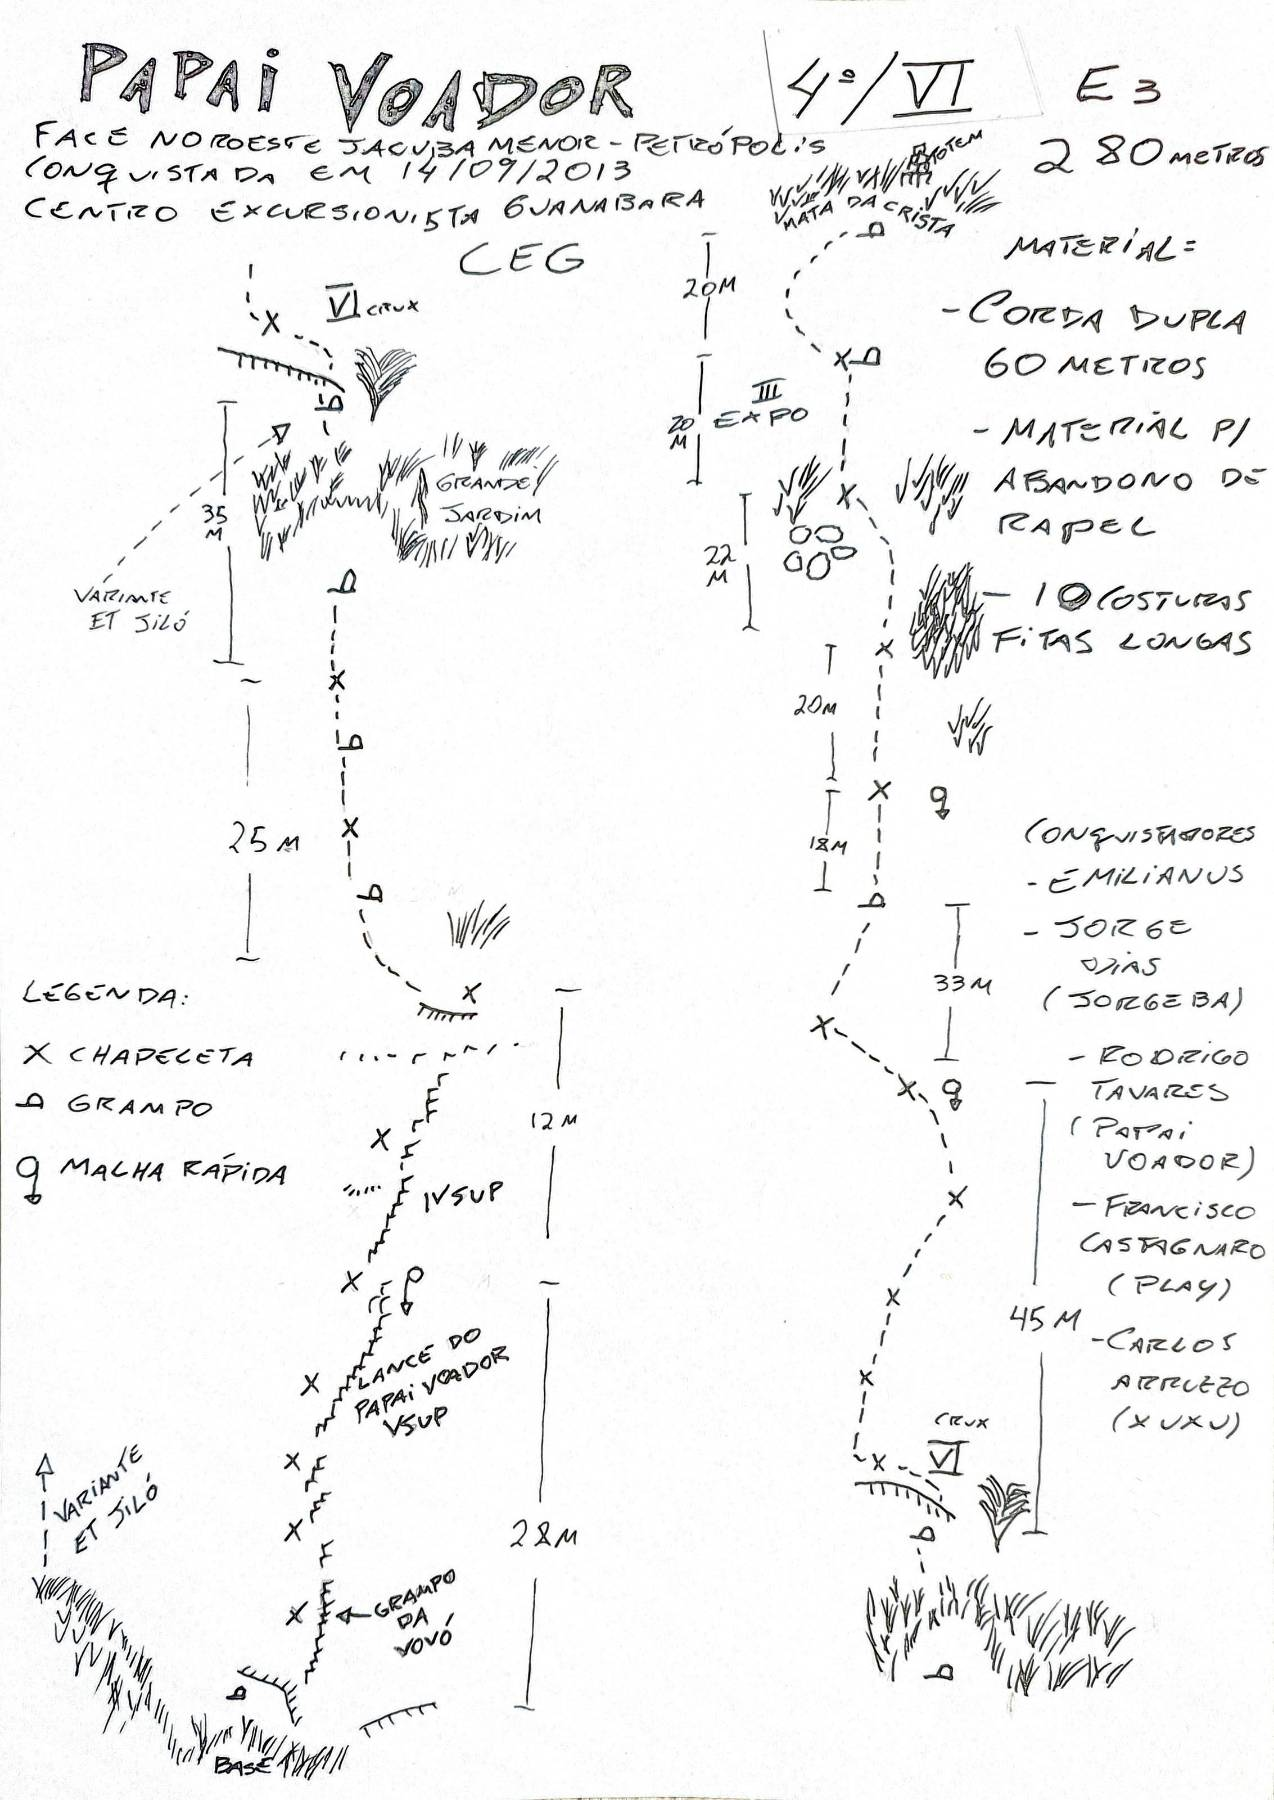 PAPAI VOADOR
4º/VI E3
FACE NOROESTE JACUBA MENOR - PETRÓPOLIS
280 METROS
CONQUISTADA EM 14/09/2013
CENTRO EXCURSIONISTA GUANABARA
CEG
VI CRUX
35 M
GRANDE
JARDIM
VARIANTE
ET JILÓ
25 M
LEGENDA:
X CHAPELETA
GRAMPO
MALHA RÁPIDA
12 M
IVSUP
LANCE DO
PAPAI VOADOR
VSUP
VARIANTE
ET JILÓ
28 M
GRAMPO
DA
VOVÓ
BASE
TOTEM
MATA DA CRISTA
20 M
III
EXPO
20
M
22
M
20 M
18 M
33 M
45 M
CRUX
VI
MATERIAL =
- CORDA DUPLA
60 METROS
- MATERIAL P/
ABANDONO DE
RAPEL
- 10 COSTURAS
FITAS LONGAS
CONQUISTADORES
- EMILIANUS
- JORGE
DIAS
(JORGEBA)
- RODRIGO
TAVARES
(PAPAI
VOADOR)
- FRANCISCO
CASTAGNARO
(PLAY)
- CARLOS
(XUXU)